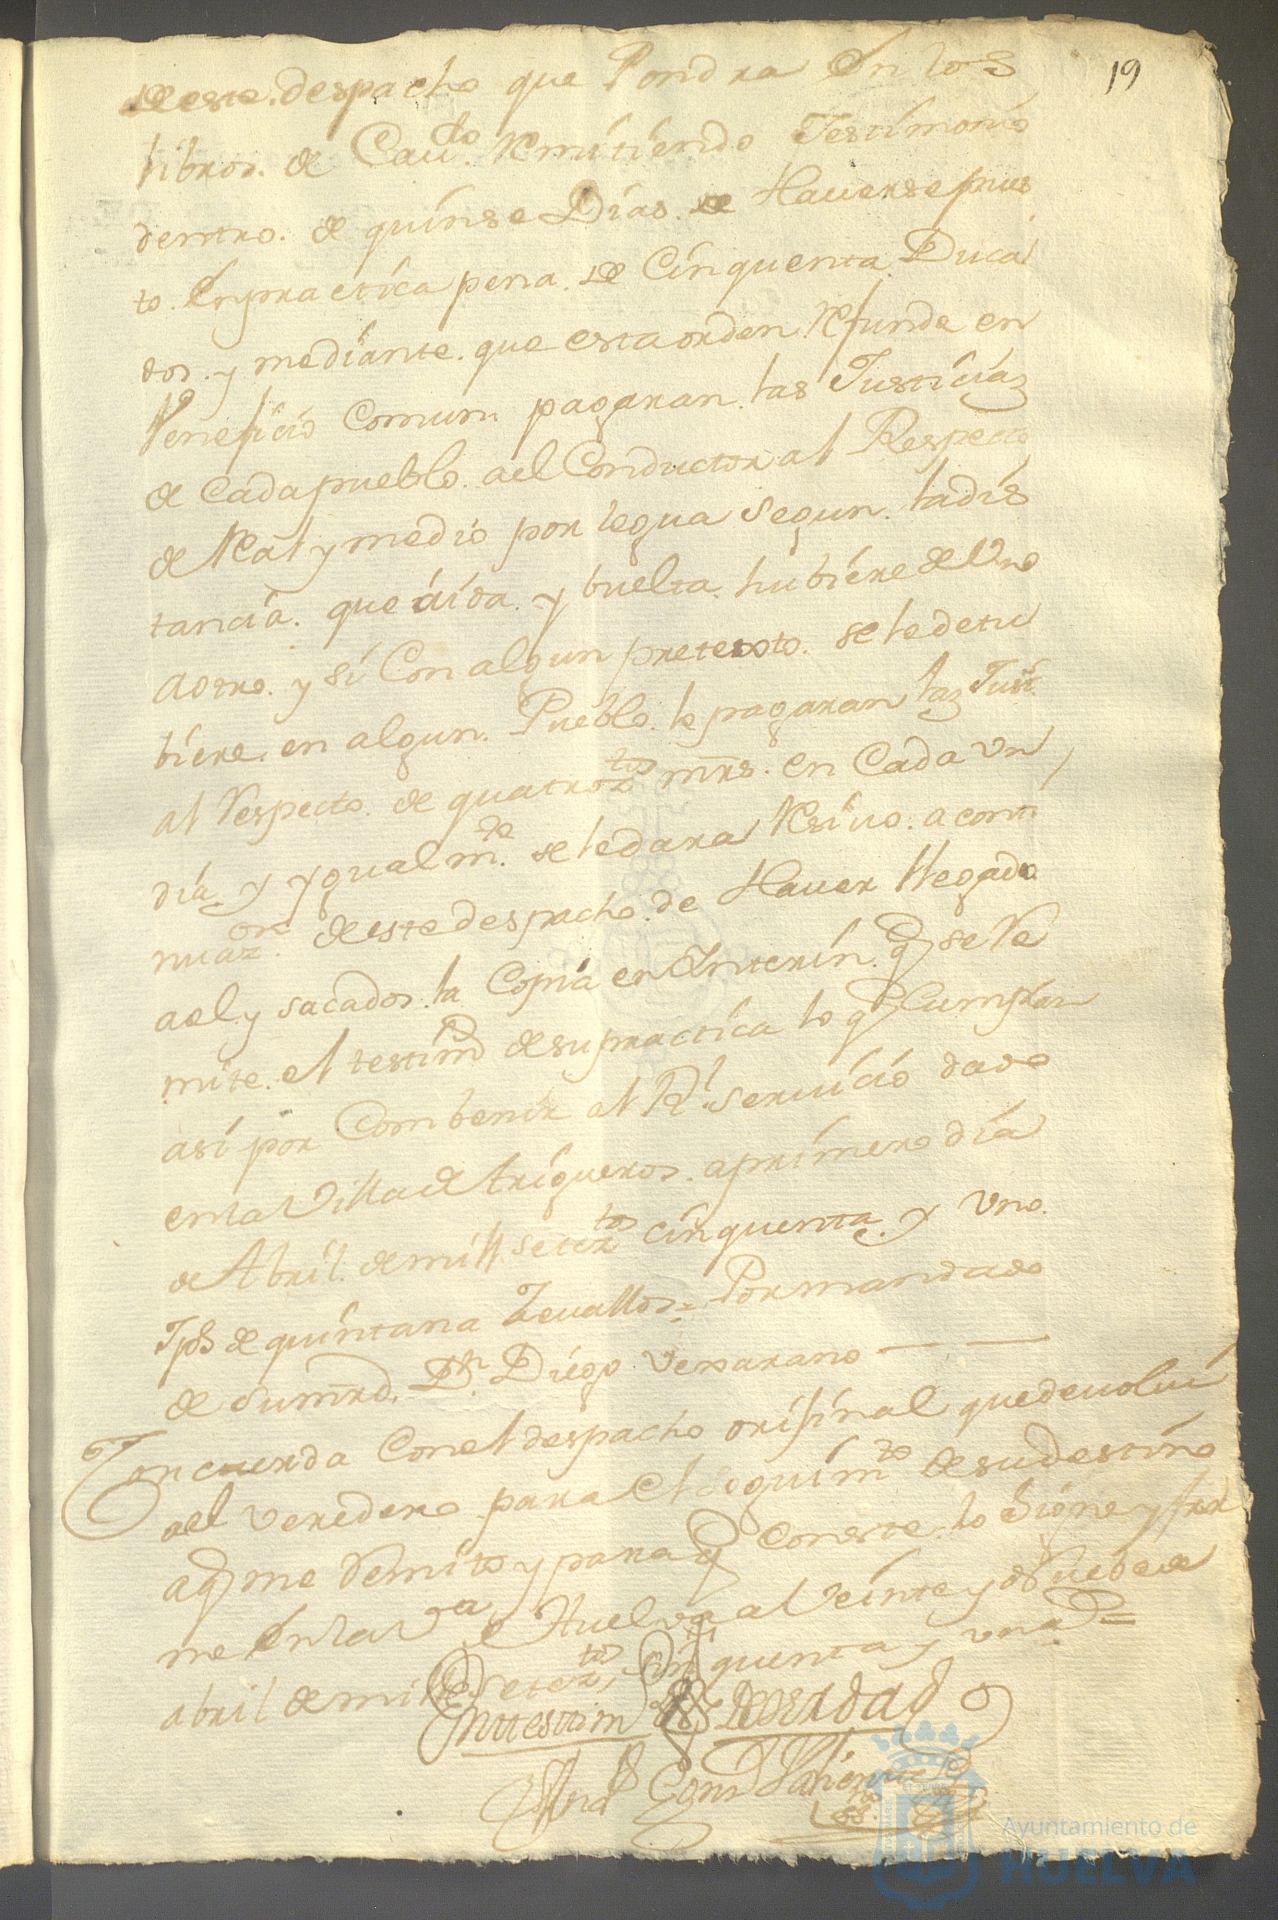 19
de este despacho que Pondra En los
libros. de Cavdo. Remitiendo Testimonio
dentro. de quinse Dias. de Haverse pues
to. En practica pena. de Cinquenta Duca
dos. y mediante. que esta orden Refunde en
Veneficio Comun. pagaran. las Justicias
de Cada pueblo. ael Conductor al Respecto
de Real y medio por legua segun. la dis
tancia. que áida. y buelta. hubiere de Uno
a otro. y si Con algun pretexto. se le detu
biere. en algun. Pueblo. le pagaran las Just.
al Respecto. de quatroztos mrs. en Cada Un
dia. y Ygualmte. se le dara Resivo. a conti
nuazon. de este despacho. de Haver llegado
ael y sacados. la Copia en Interin. q se Re
mite. el testimo de su practica lo q Cumplan
asi por Combenir al Rl. servicio dado
en la Villa de trigueros. a primero dia
de Abril. de mill setezto cinquenta. y Uno.
Tphs de quintana Zevallos = Por mandado
de Sumrd. Dn. Diego Vexarano
Concuerda Con el despacho orijinal que devolvi
ael veredero para el seguimto de su destino
aq me Remito y para q Conste lo Signe y fir
me En la Va de Huelva al veinte y Nuebe de
abril de mill setezto Cinquenta y uno =
En testim de verdad
Ands Gonz Valiente
Ayuntamiento de
HUELVA